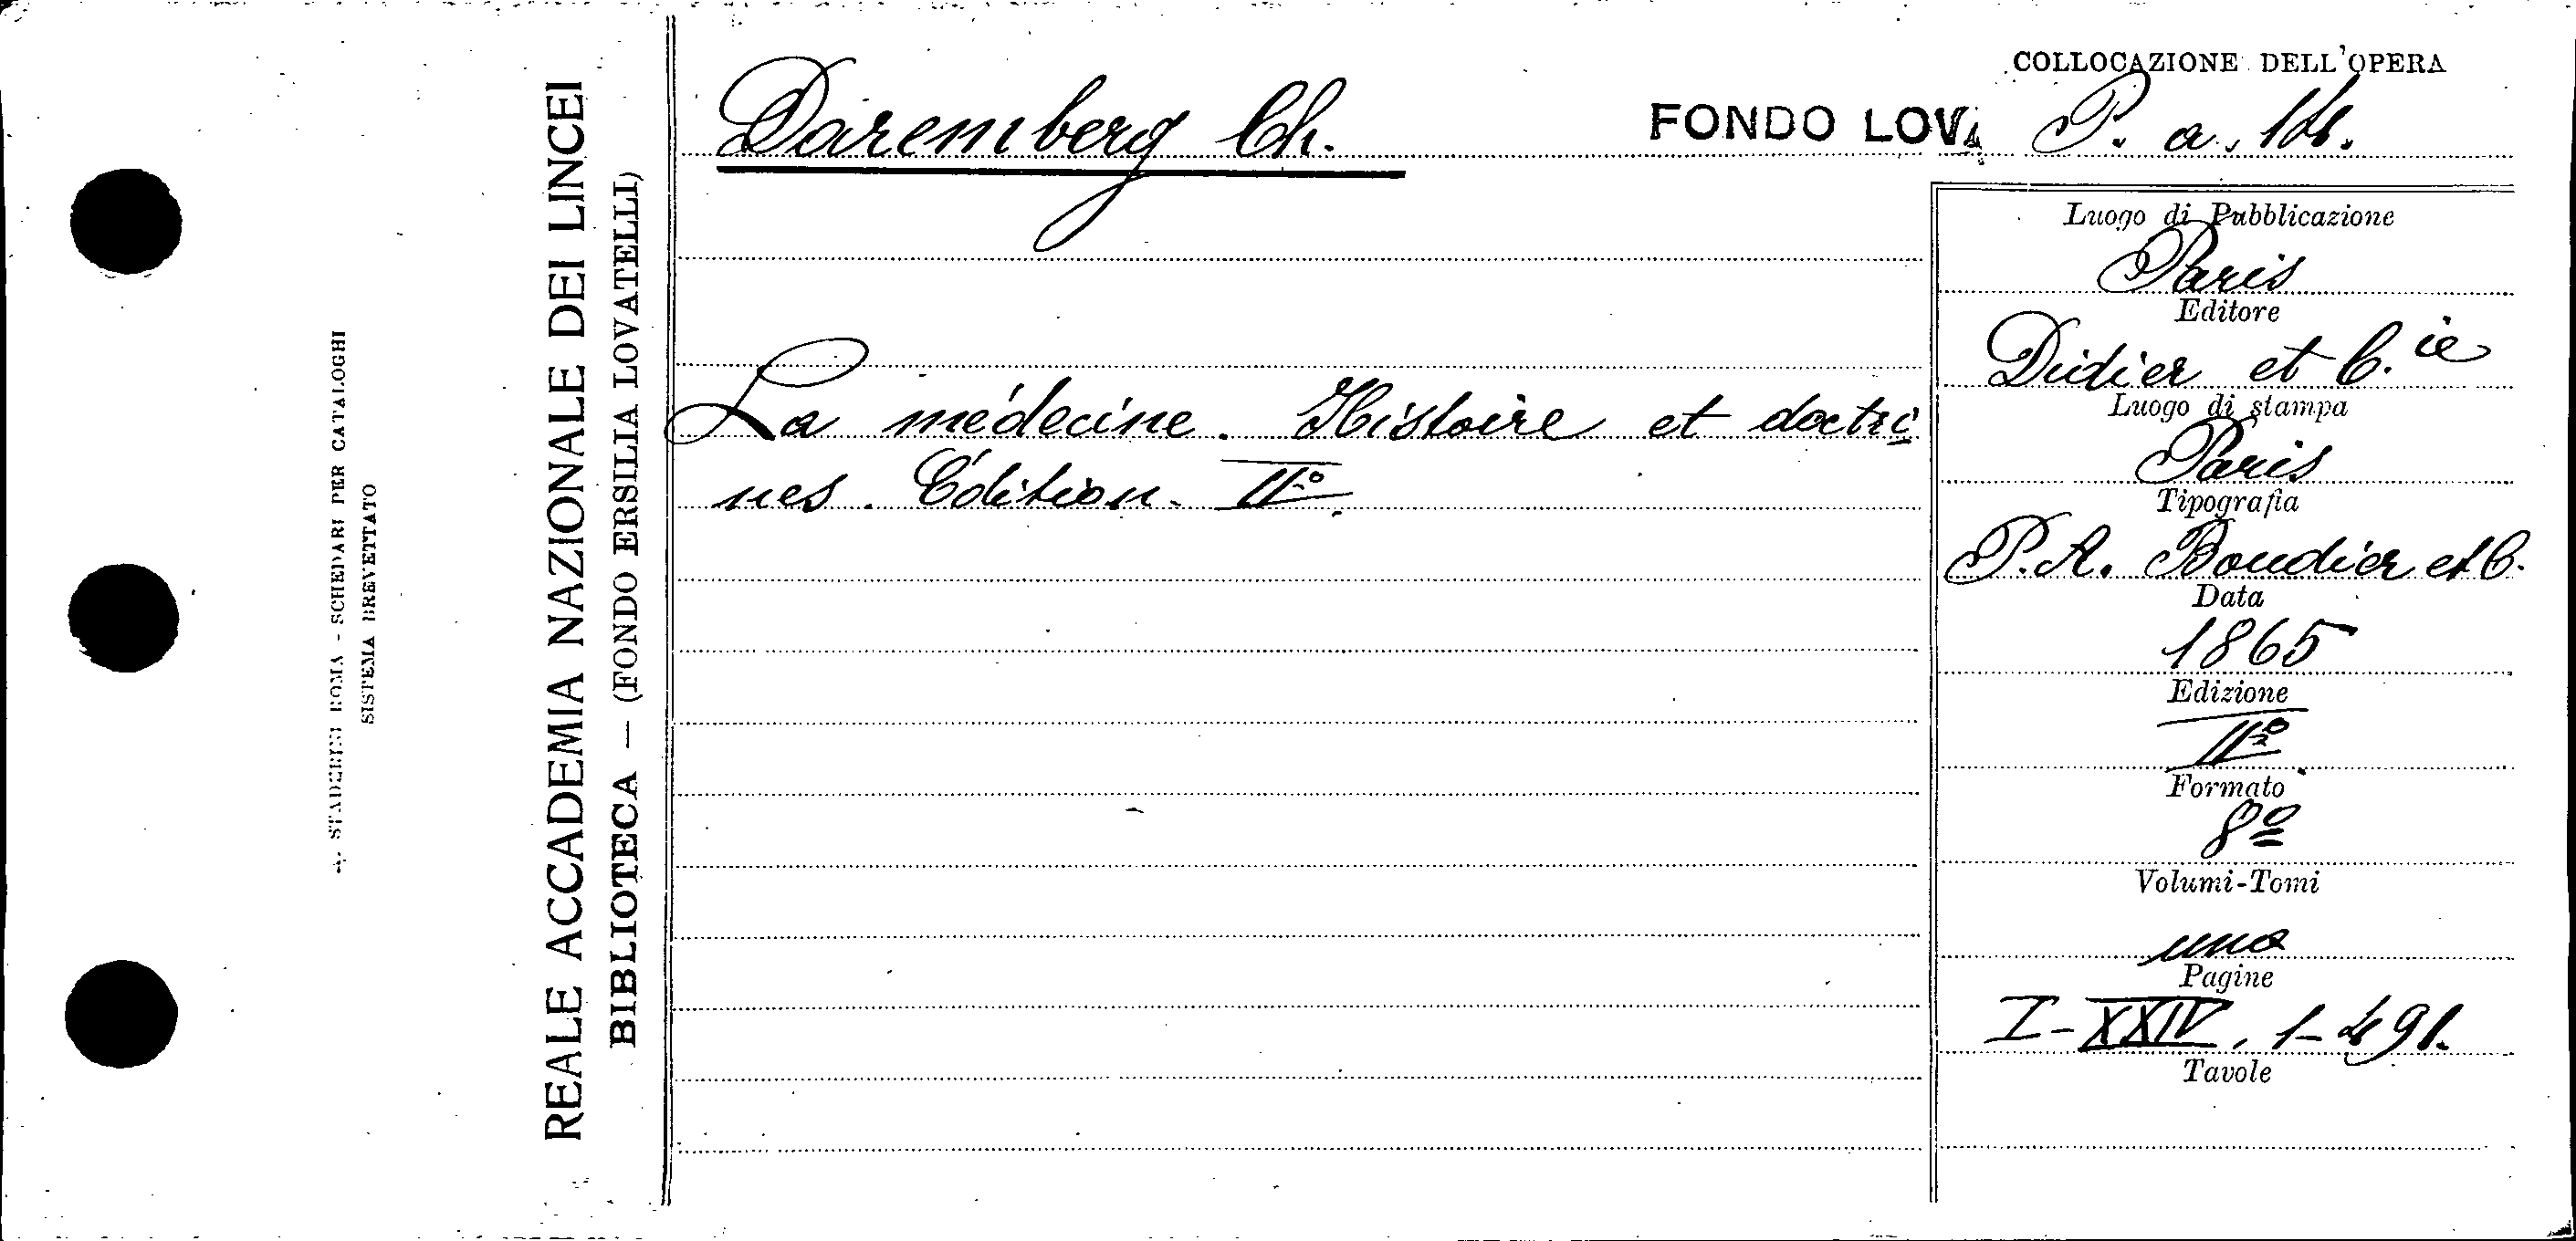 A. STADERINI ROMA - SCHEDARI PER CATALOGHI
SISTEMA BREVETTATO
REALE ACCADEMIA NAZIONALE DEI LINCEI
BIBLIOTECA — (FONDO ERSILIA LOVATELLI)
COLLOCAZIONE DELL'OPERA
Daremberg Ch.
FONDO LOVA
P. a. 14.
La médecine. Histoire et doctri
nes. Édition II.º
Luogo di Pubblicazione
Paris
Editore
Didier et C.ie
Luogo di stampa
Paris
Tipografia
P.A. Boudier et C.
Data
1865
Edizione
IIº
Formato
8º
Volumi-Tomi
uno
Pagine
I-XXIV, 1-491.
Tavole